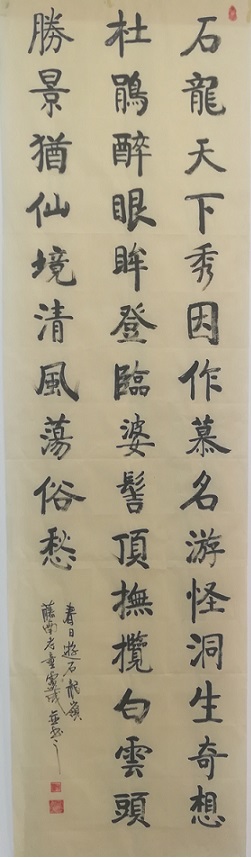 石龍天下秀因作慕名游怪洞生奇想
杜鵑醉眼眸登臨婆髻頂撫攬白雲頭
勝景猶仙境清風蕩俗愁
春日遊石龍嶺